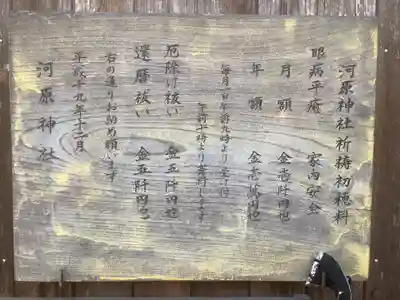 河原神社祈祷初穂料
眼病平癒 家内安全
月額 金壱阡円也
年額 金壱萬円也
毎月一日午前九時より受け付
午前十時より祈祷します
厄除け祓い 金五阡円也
還暦祓い 金五阡円也
右の通りお納め願います
平成十九年十二月
河原神社